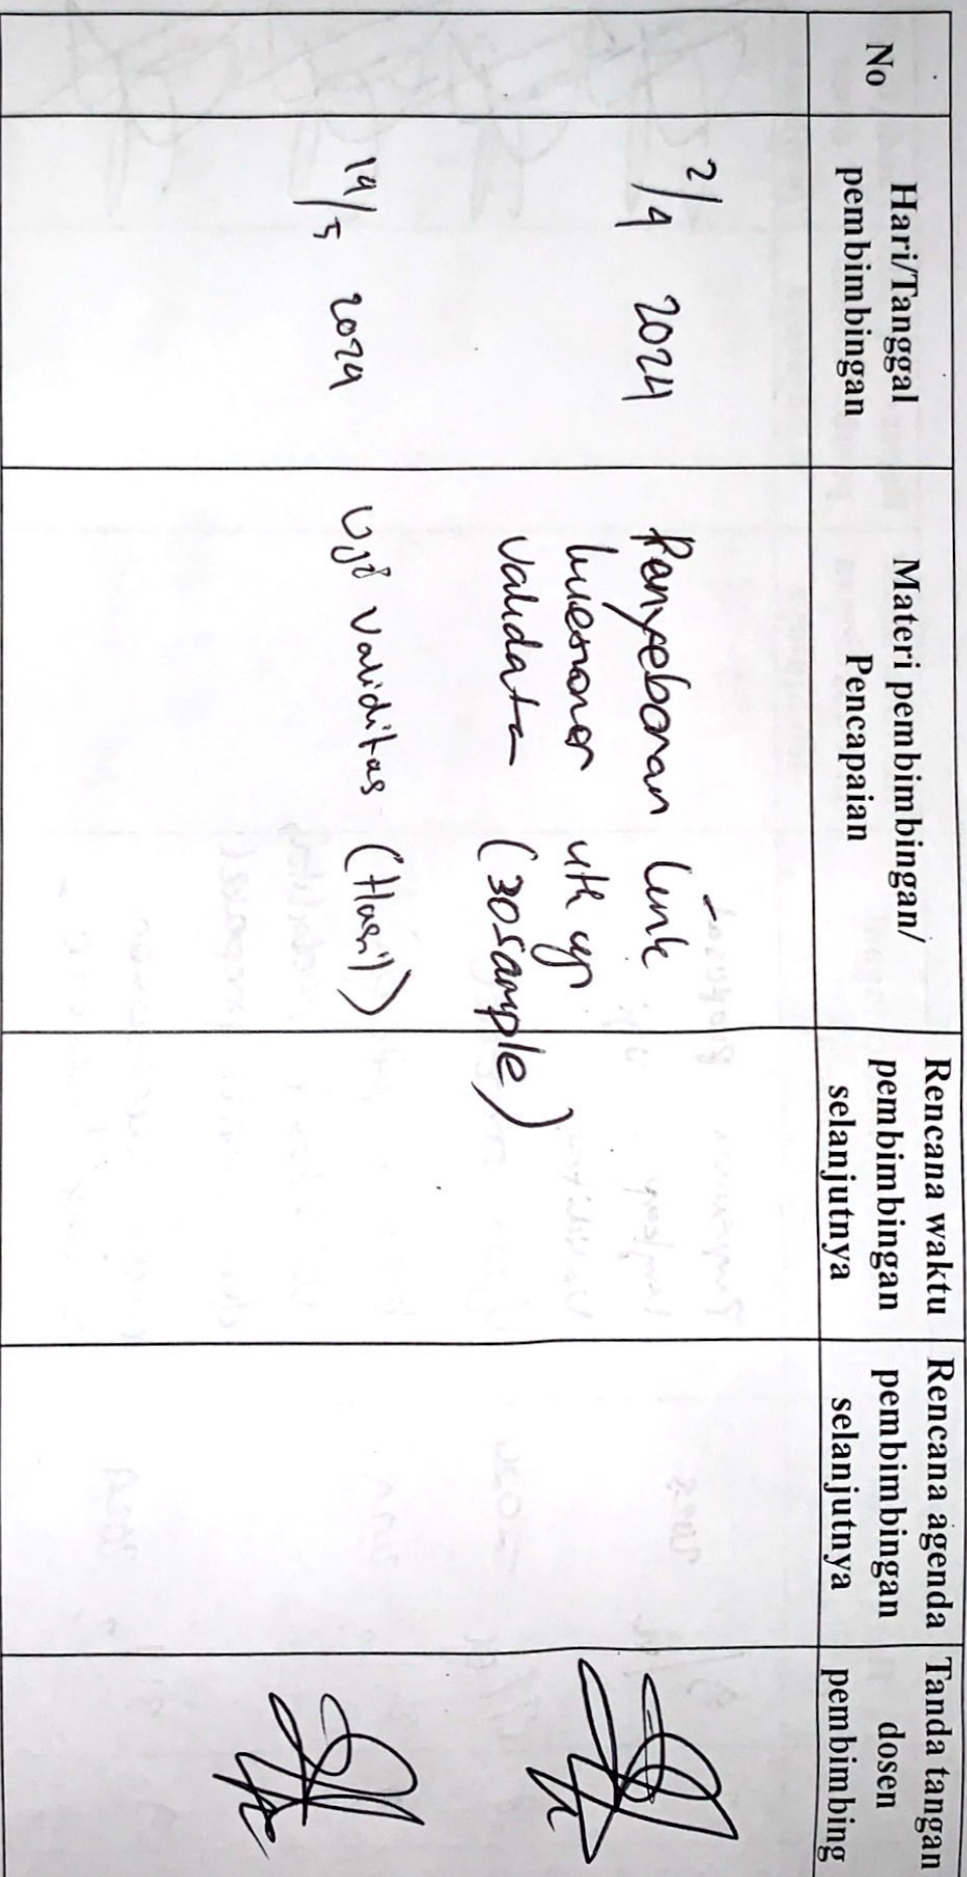 No
Hari/Tanggal
pembimbingan
Materi pembimbingan/
Pencapaian
Rencana waktu
pembimbingan
selanjutnya
Rencana agenda
pembimbingan
selanjutnya
Tanda tangan
dosen
pembimbing
2/4 2024
Penyebaran link
kuesioner utk uji
validata
(30 sample)
14/5 2024
Uji validitas (Hasil)